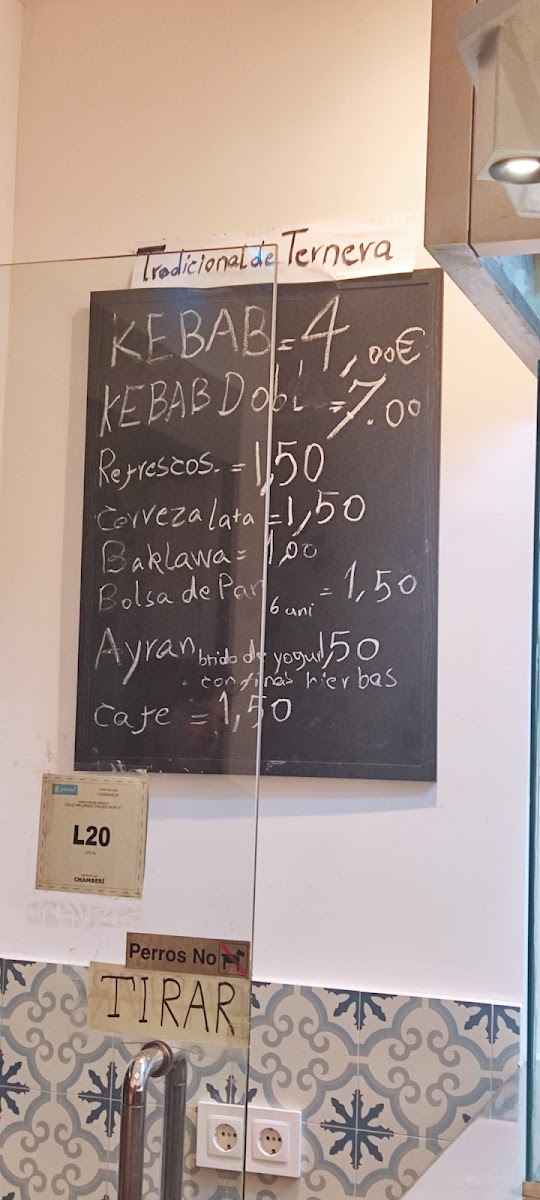 Tradicional de Ternera
KEBAB = 4,00€
KEBAB Dobl = 7.00
Refrescos. = 1,50
Cerveza lata = 1,50
Baklawa = 1,00
Bolsa de Pan 6 uni = 1,50
Ayran brido de yogur 1,50
con finas hierbas
Cafe = 1,50
L20
LOCAL
CHAMBERÍ
Perros No
TIRAR